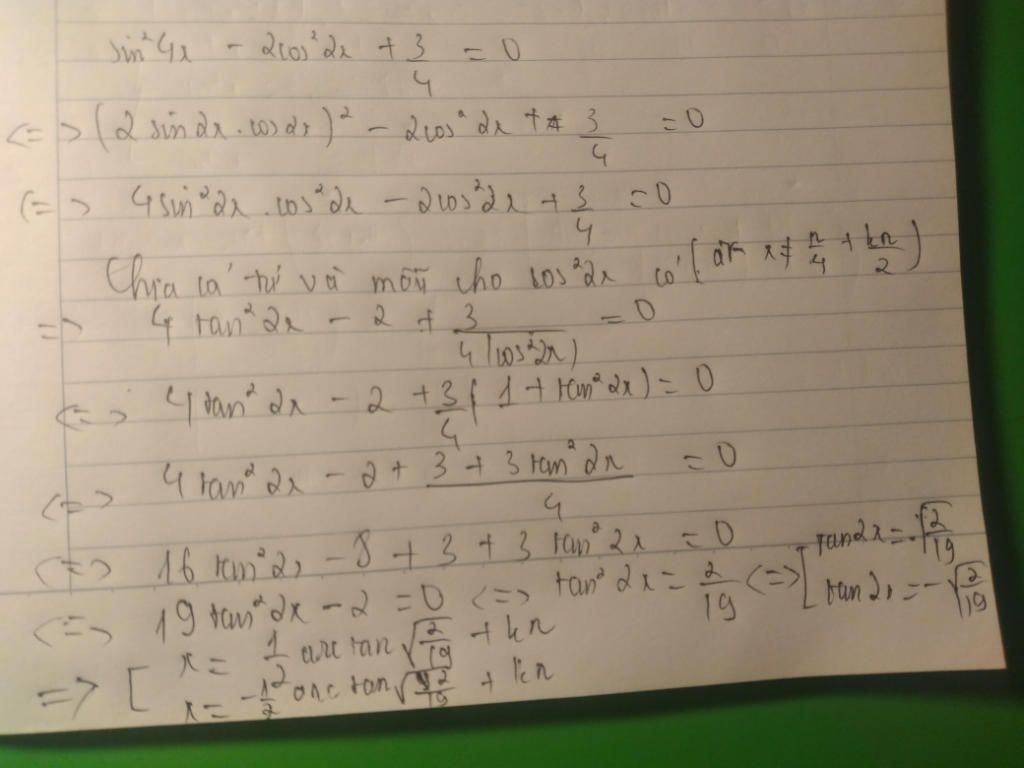 sin²4x - 2cos²2x + 3/4 = 0
<=> (2 sin2x.cos2x)² - 2cos²2x + 3/4 = 0
<=> 4sin²2x.cos²2x - 2cos²2x + 3/4 = 0
Chia cả tử và mẫu cho cos²2x có ( x ≠ π/4 + kπ/2 )
=> 4 tan²2x - 2 + 3/(4(cos²2x)) = 0
<=> 4 tan²2x - 2 + 3/4 ( 1 + tan²2x ) = 0
<=> 4 tan²2x - 2 + (3 + 3 tan²2x)/4 = 0
<=> 16 tan²2x - 8 + 3 + 3 tan²2x = 0
<=> 19 tan²2x - 2 = 0 <=> tan²2x = 2/19 <=> [ tan2x = √(2/19)
tan2x = -√(2/19)
=> [ x = 1/2 arctan √(2/19) + kπ
x = -1/2 arctan √(2/19) + kπ